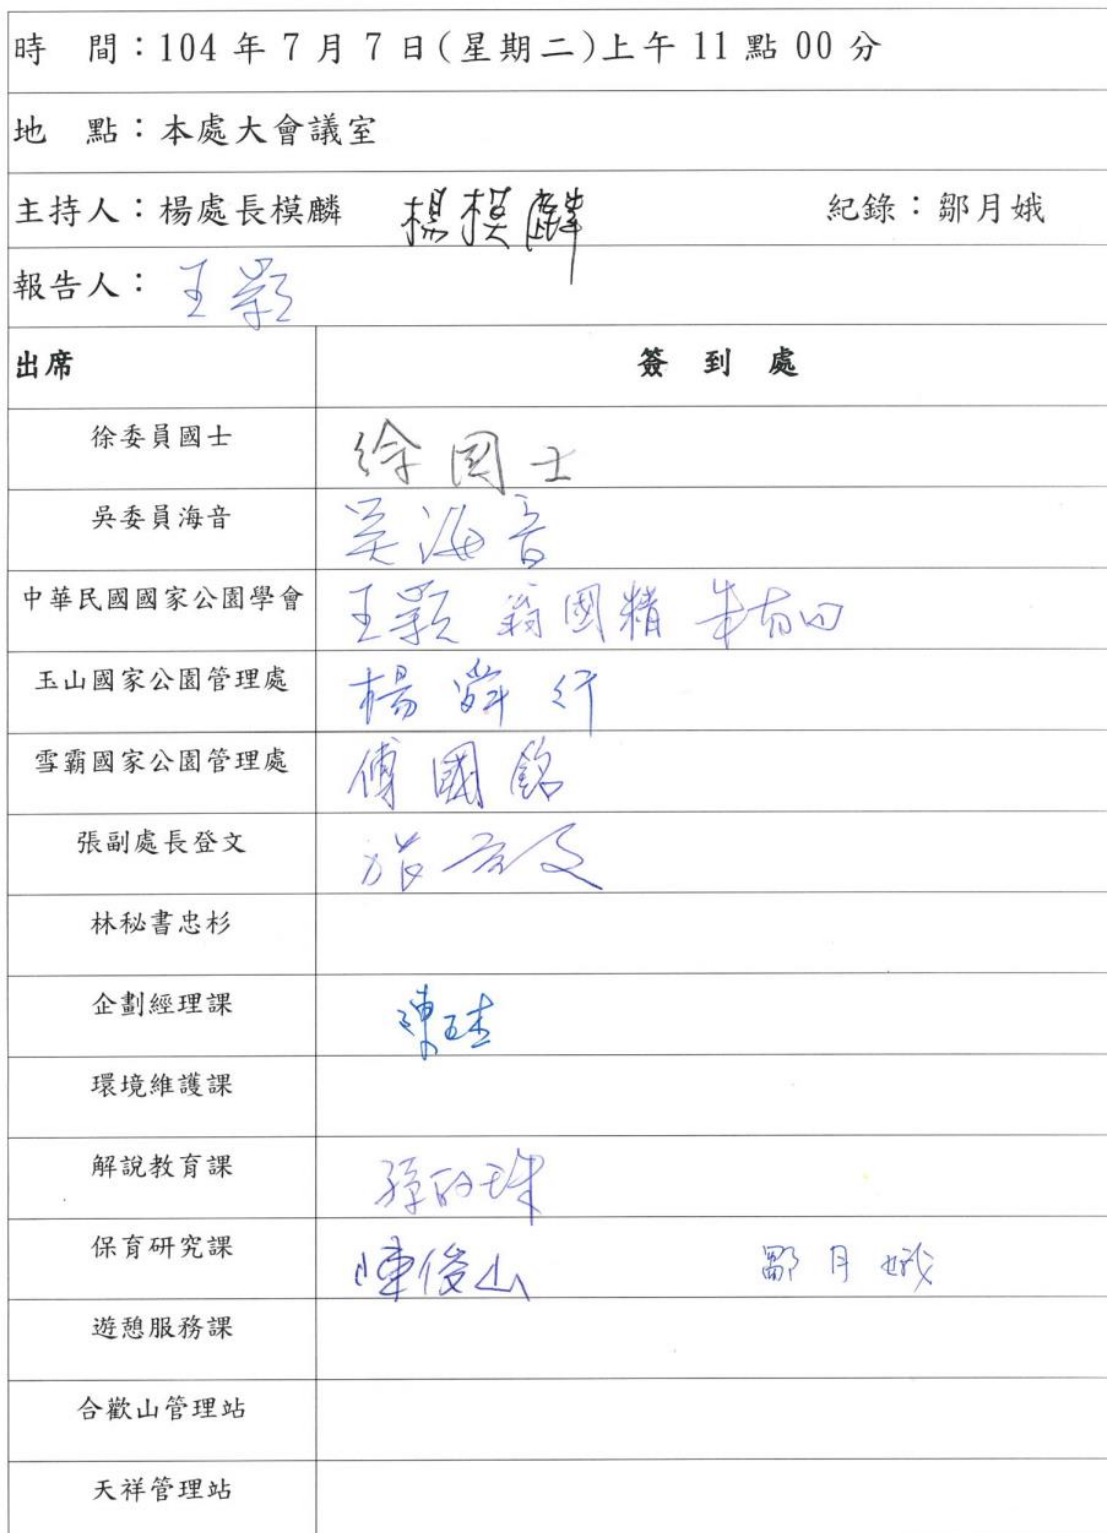 時　間：104 年 7 月 7 日(星期二)上午 11 點 00 分
地　點：本處大會議室
主持人：楊處長模麟　楊模麟　紀錄：鄒月娥
報告人：王穎
出席　簽 到 處
徐委員國士　徐國士
吳委員海音　吳海音
中華民國國家公園學會　王穎 翁國精 朱有田
玉山國家公園管理處　楊舜行
雪霸國家公園管理處　傅國銘
張副處長登文　張登文
林秘書忠杉
企劃經理課
環境維護課
解說教育課
保育研究課　陳俊山　鄒月娥
遊憩服務課
合歡山管理站
天祥管理站